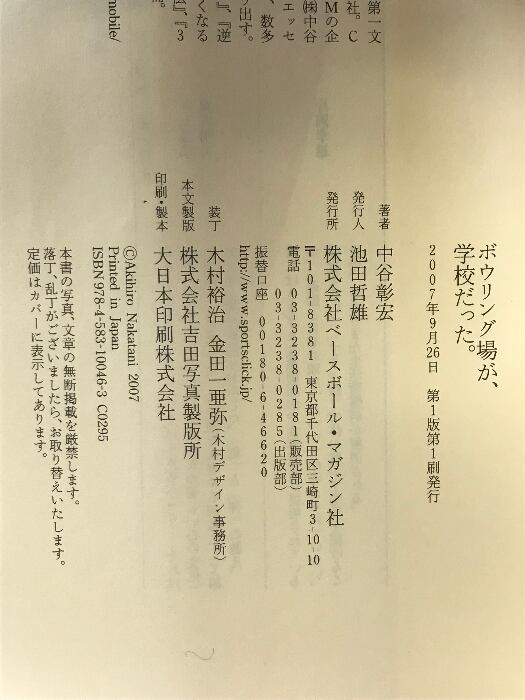 第一文
社。C
Mの企
㈱中谷
エッセ
、数多
り出す。
『逆
くなる
』、『3
mobile/
ボウリング場が、
学校だった。
2007年9月26日　第1版第1刷発行
著者　中谷彰宏
発行人　池田哲雄
発行所　株式会社ベースボール・マガジン社
〒101-8381　東京都千代田区三崎町3-10-10
電話　03-3238-0181（販売部）
03-3238-0285（出版部）
振替口座　00180-6-46620
http://www.sportsclick.jp/
装丁　木村裕治　金田一亜弥（木村デザイン事務所）
本文製版　株式会社吉田写真製版所
印刷・製本　大日本印刷株式会社
©Akihiro Nakatani 2007
Printed in Japan
ISBN978-4-583-10046-3 C0295
本書の写真、文章の無断掲載を厳禁します。
落丁、乱丁がございましたら、お取り替えいたします。
定価はカバーに表示してあります。